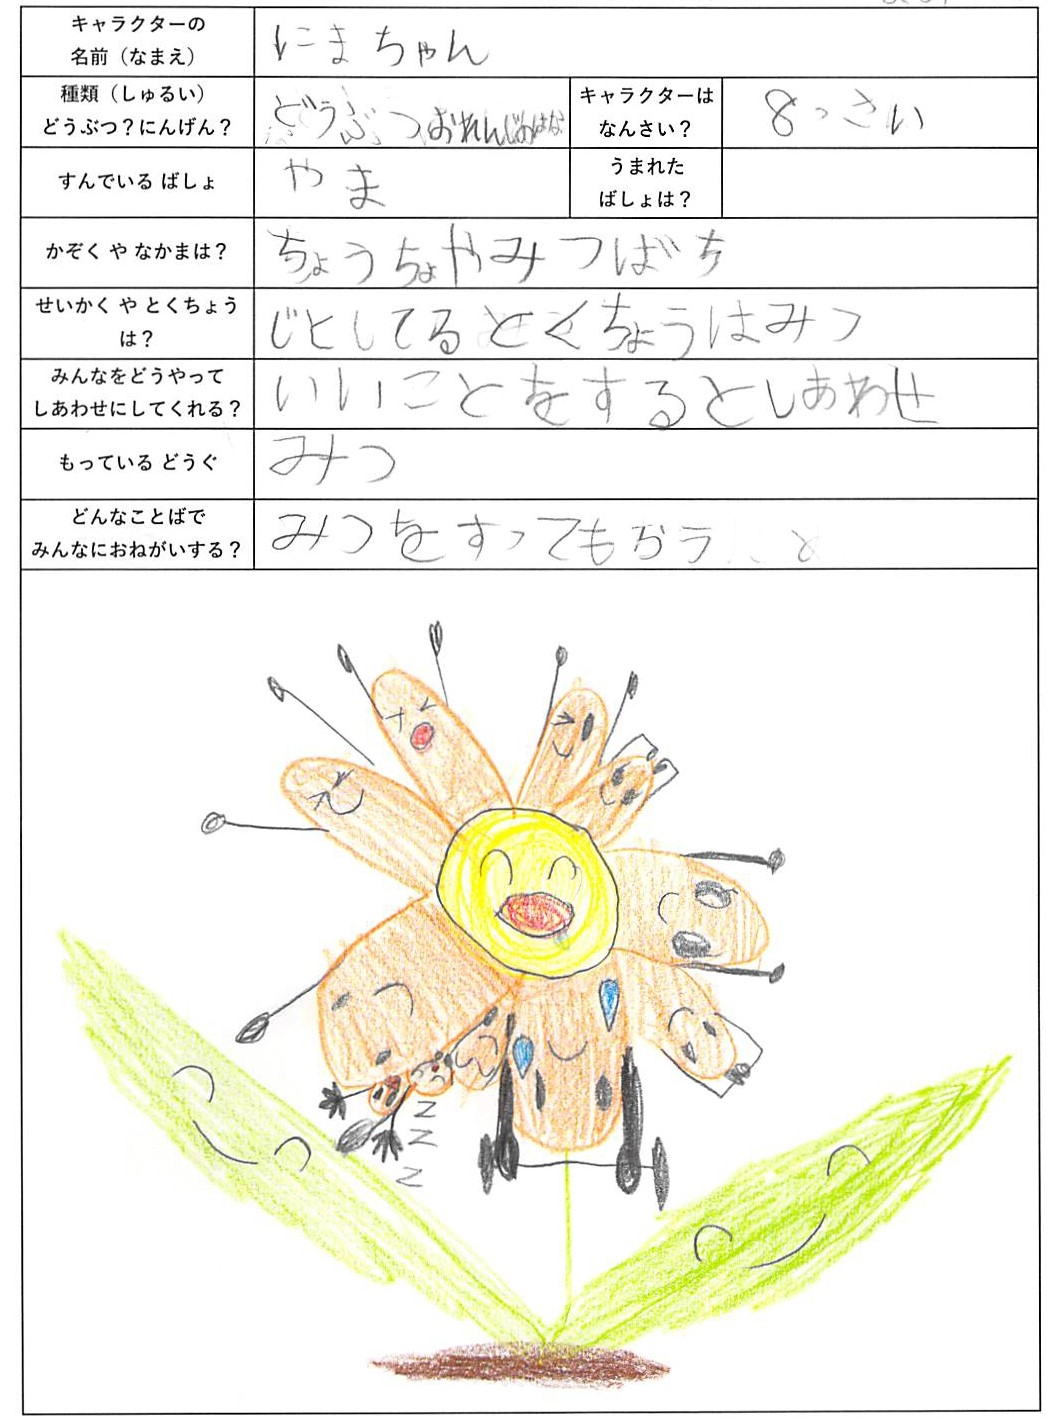 キャラクターの
名前（なまえ）
にまちゃん
種類（しゅるい）
どうぶつ？にんげん？
どうぶつ おれんじのはな
キャラクターは
なんさい？
8っさい
すんでいる ばしょ
やま
うまれた
ばしょは？
かぞく や なかまは？
ちょうちょやみつばち
せいかく や とくちょう
は？
じとしてる とくちょうはみつ
みんなをどうやって
しあわせにしてくれる？
いいことをするとしあわせ
もっている どうぐ
みつ
どんなことばで
みんなにおねがいする？
みつをすってもらう
Z
Z
Z